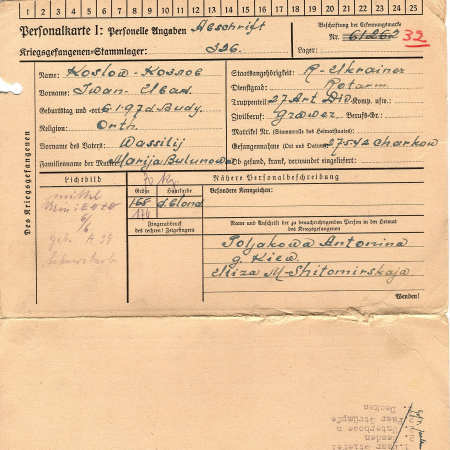 1 2 3 4 5 6 7 8 9 10 11 12 13 14 15 16 17 18 19 20 21 22 23 24 25
Personalkarte I: Personelle Angaben Abschrift
Kriegsgefangenen-Stammlager: 326.
Beschriftung der Erkennungsmarke
Nr. 32
Lager:
Des Kriegsgefangenen
Name: Koslow - Козлов
Vorname: Iwan
Geburtstag und -ort 6.1.97 d. Budy.
Religion: Orth.
Vorname des Vaters: Wassilij
Familienname der Mutter: Marija Bulunowa
Staatsangehörigkeit: R - Ukrainer
Dienstgrad: Rotarm.
Truppenteil: 27 Art Div Komp. usw.:
Zivilberuf: Berufs-Gr.:
Matrikel Nr. (Stammrolle des Heimatstaates):
Gefangennahme (Ort und Datum): 27.5.42 Charkow
Ob gesund, krank, verwundet eingeliefert:
Lichtbild
Nähere Personalbeschreibung
Größe
Haarfarbe
Besondere Kennzeichen:
168 d. blond
Fingerabdruck
des rechten! Zeigefingers
Name und Anschrift der zu benachrichtigenden Person in der Heimat
des Kriegsgefangenen
Poljakowa Antonina
g. Kiew
M-Shitomirskaja
Wenden!
Paar Stiefel
Unterhose n
Paar Strümpfe
Decken